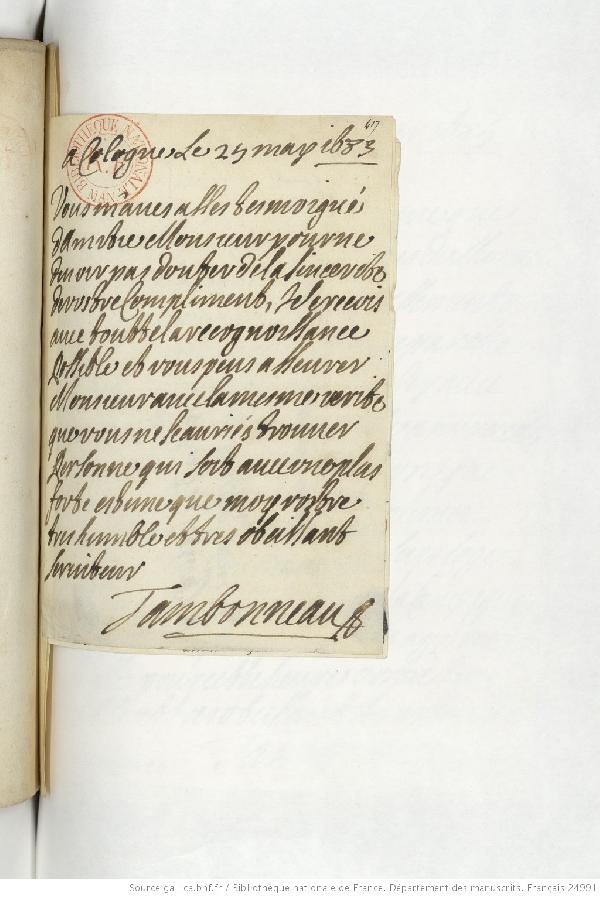 617
a Cologne Le 25 may 1683
Vous maués asses tesmoigné
damitie Monsieur pour ne
deuoir pas douter de la sincerité
de vostre Compliment, Je le recois
auec toutte la recognoissance
possible et vous peus asseurer
Monsieur auec la mesme verité
que vous ne scauriés trouuer
personne qui soit auec une plus
forte estime que moy vostre
tres humble et tres obeissant
seruiteur
Tambonneau
BIBLIOTHEQUE NATIONALE MAN
Source gallica.bnf.fr / Bibliothèque nationale de France. Département des manuscrits. Français 24991